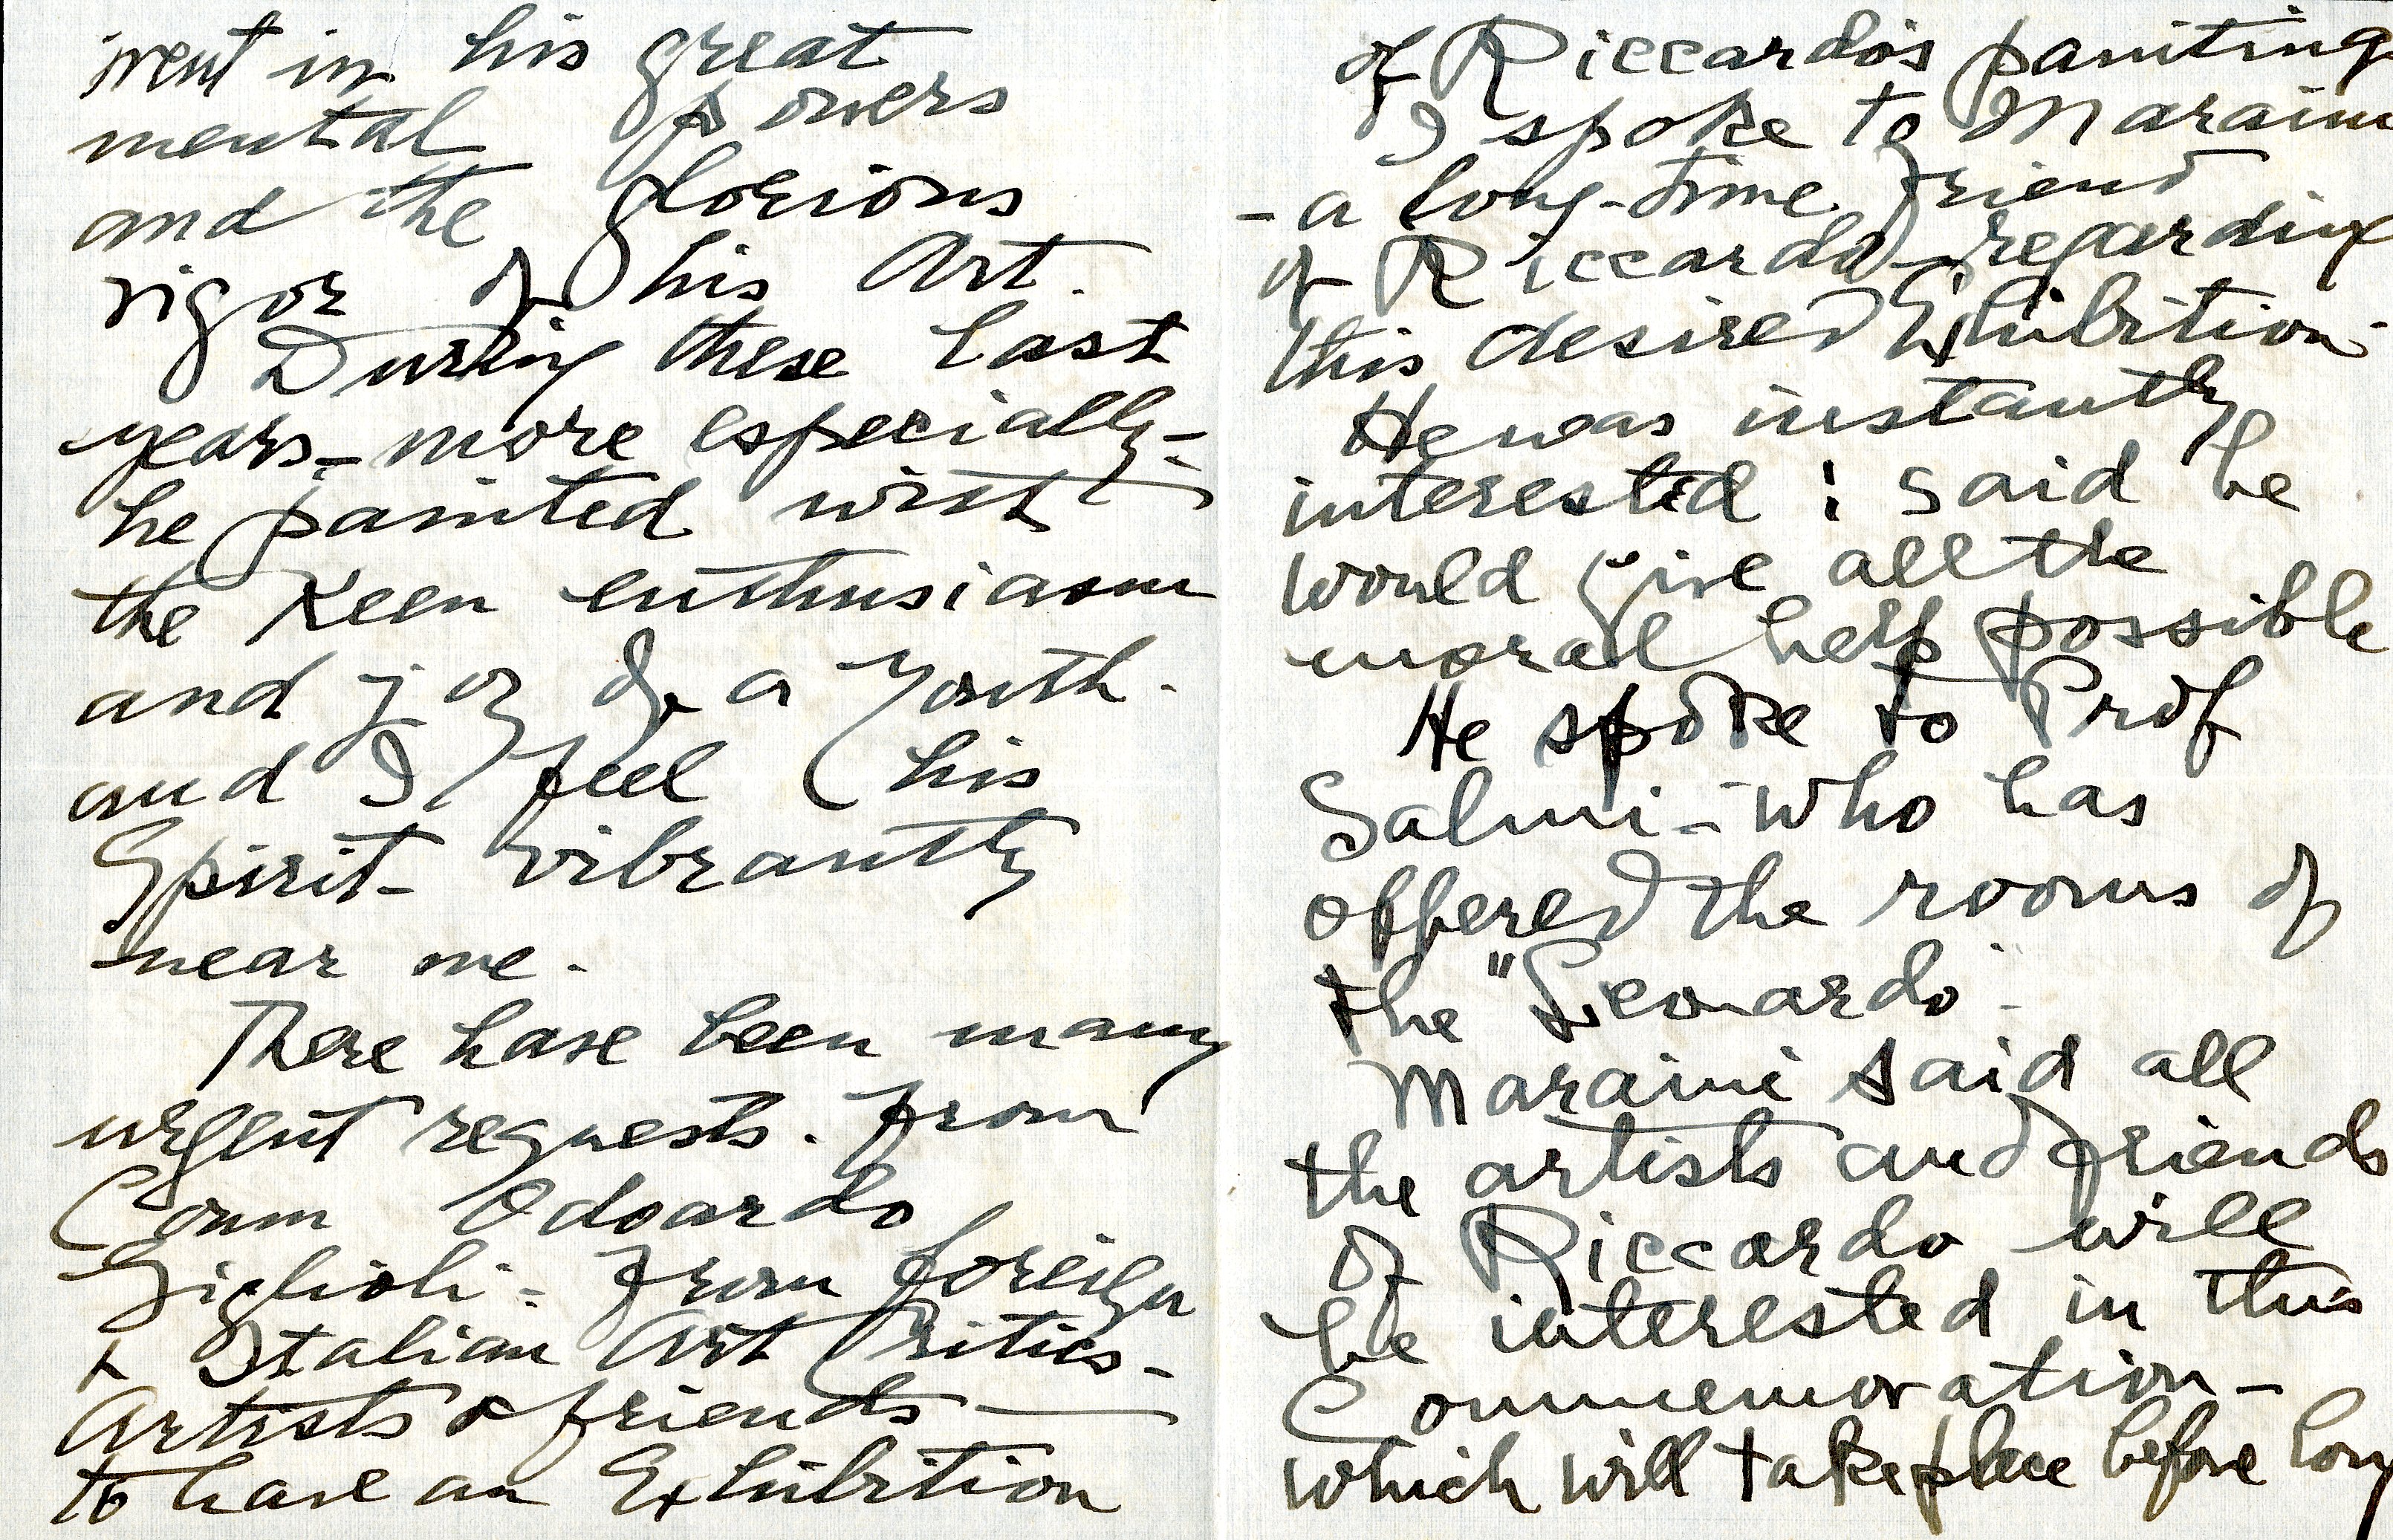 went in his great
mental powers
and the glorious
vigor of his Art.
During these last
years – more especially –
he painted with
the keen enthusiasm
and joy of a youth.
and I feel his
Spirit – vibrantly
near me.
There have been many
urgent requests. from
Comm Odoardo
Giglioli – from foreign
& Italian Art Critics –
Artists & friends —
to have an Exhibition
of Riccardo's painting
I spoke to Maraini
– a long-time friend
of Riccardo – regarding
this desired Exhibition –
He was instantly
interested : said he
would give all the
moral help possible
He spoke to Prof
Salmi – who has
offered the rooms of
the "Leonardo"
Maraini said all
the artists and friends
of Riccardo will
be interested in this
Commemoration –
which will take place before long